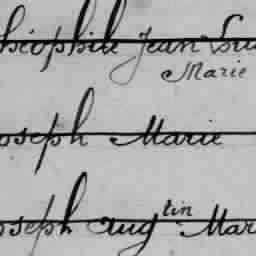 héophile Jean Lu
Marie
oseph Marie
oseph augtin Mar